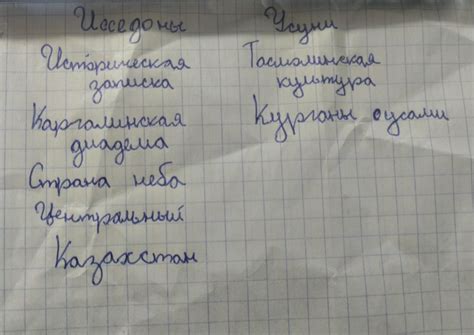 Исседоны
Историческая
записка
Каргалинская
диадема
Страна неба
Центральный
Казахстан
Усуни
Тасмолинская
культура
Курганы с усами